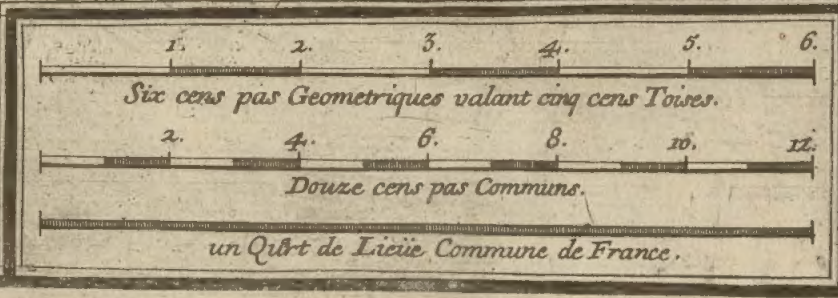 1. 2. 3. 4. 5. 6.
Six cens pas Geometriques valant cinq cens Toises.
2. 4. 6. 8. 10. 12.
Douze cens pas Communs.
un Qůrt de Lieüe Commune de France.